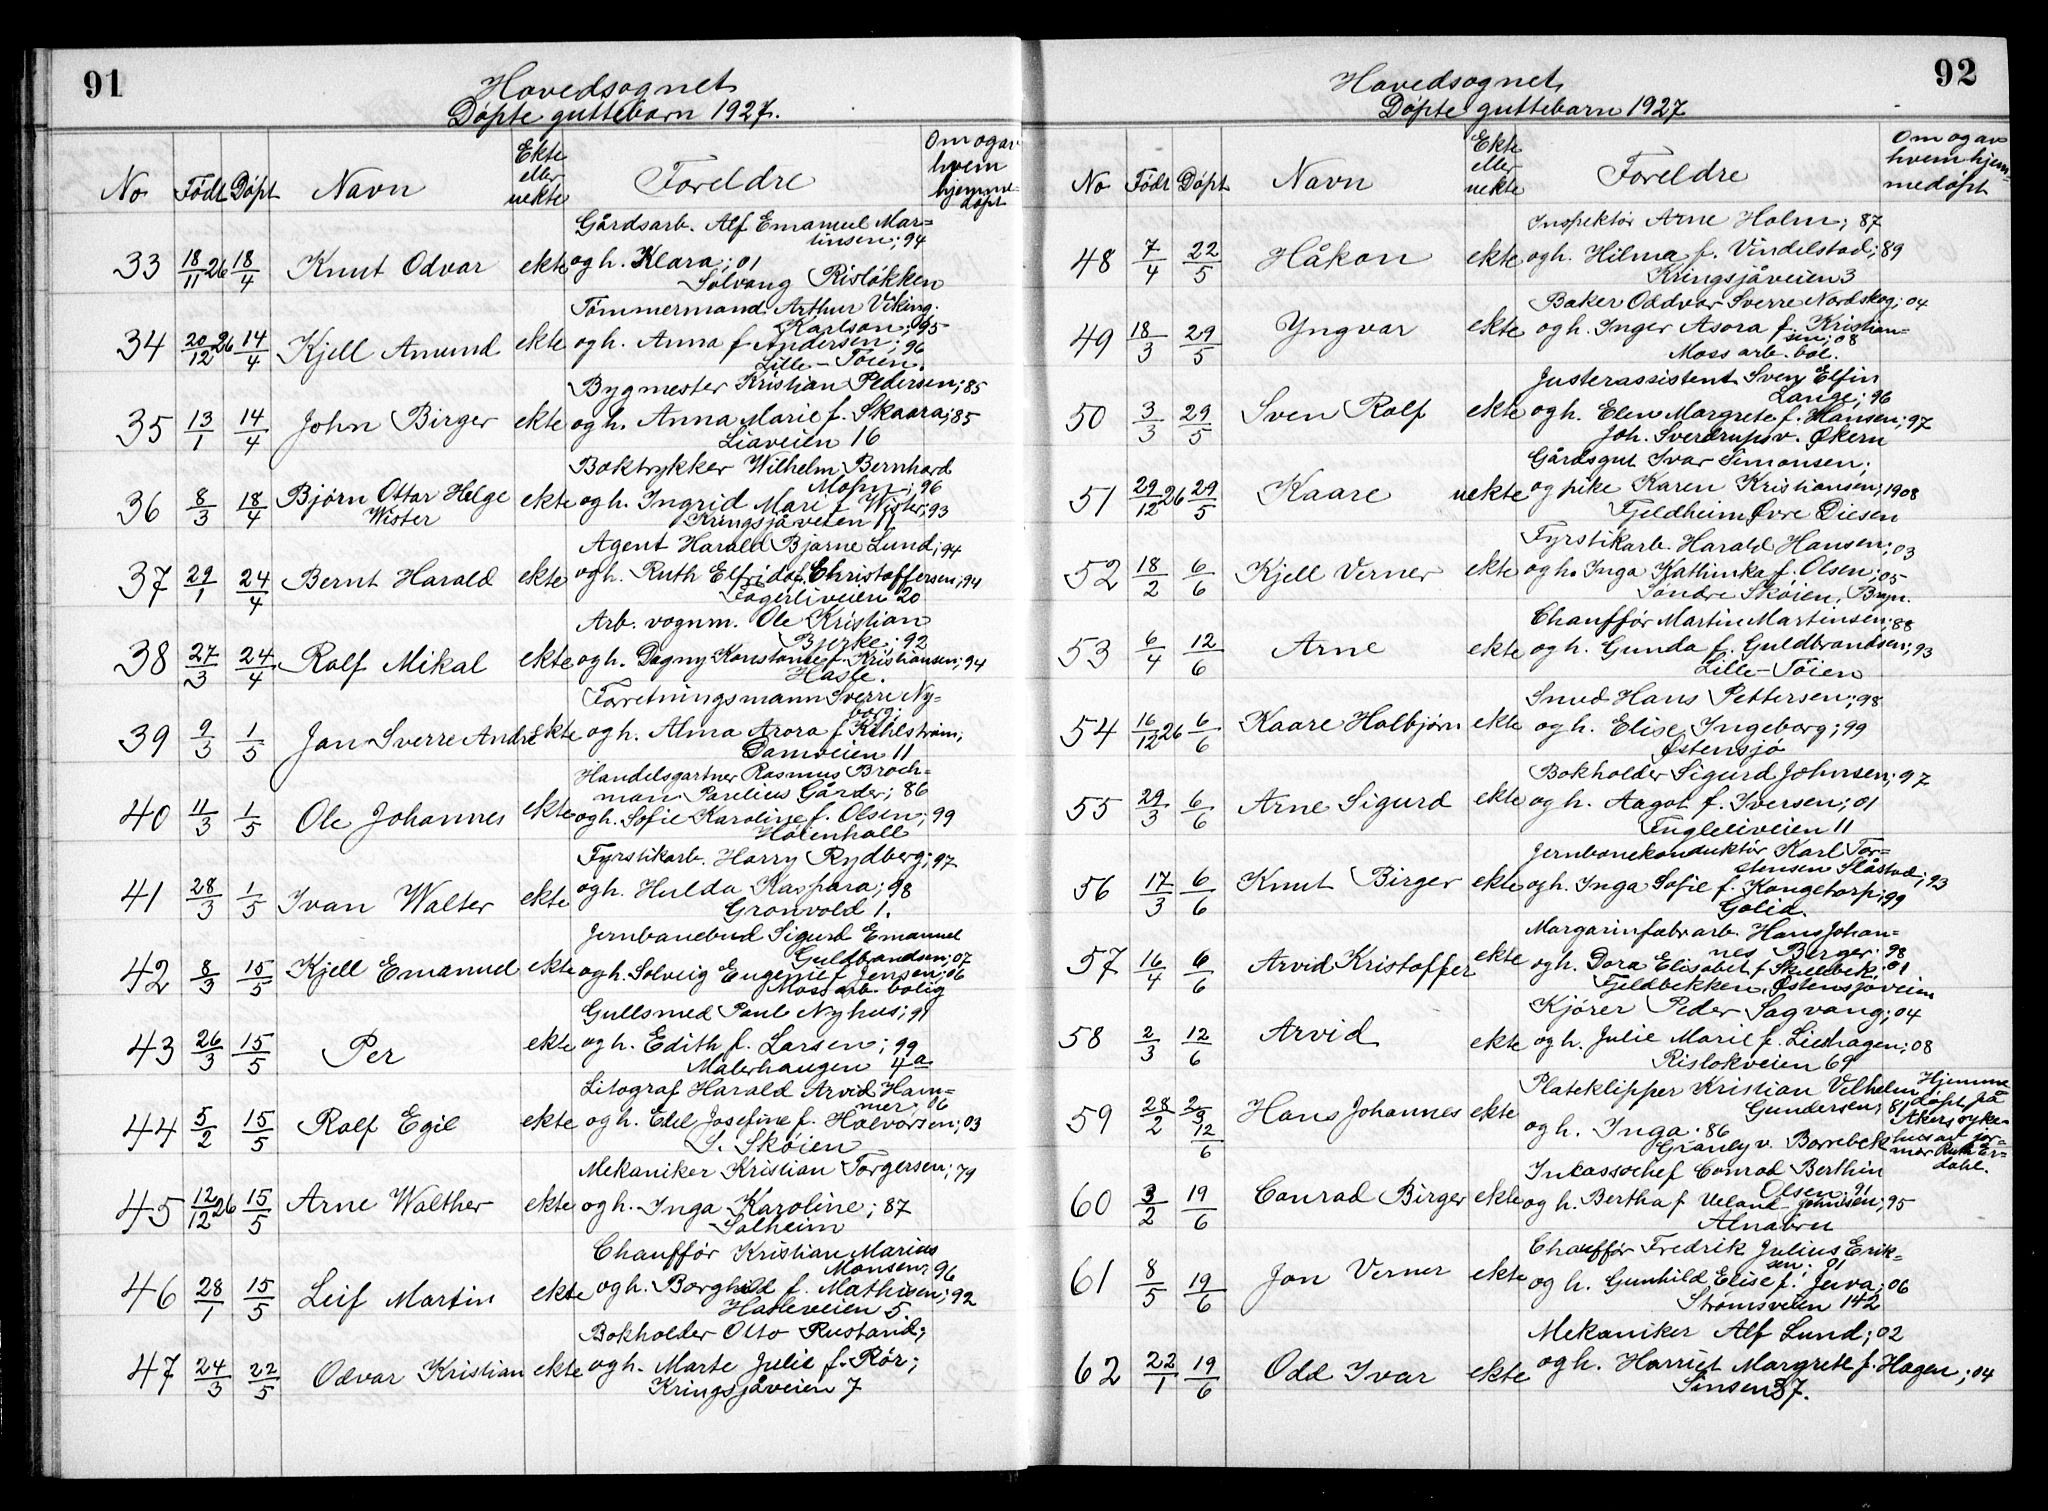 91
Hovedsognet
Døpte guttebarn 1927.
No Født Døpt Navn Ekte eller uekte Foreldre Om og av hvem hjemme-døpt
Gårdsarb. Alf Emanuel Mar-
tinsen; 94
33 18/11 26 18/4 Knut Odvar ekte og h. Klara; 01
Solvang Risløkken
Tømmermand Arthur Viking
Karlson; 95
34 20/12 26 14/4 Kjell Amund ekte og h. Anna f Andersen; 96
Lille-Tøien.
Bygmester Kristian Pedersen; 85
35 13/1 14/4 John Birger ekte og h. Anna Marie f. Skaara; 85
Liaveien 16
Boktrykker Wilhelm Bernhard
Mohn; 96
36 8/3 18/4 Bjørn Ottar Helge Wister ekte og h. Ingrid Marie f Wister; 93
Kringsjåveien 11
Agent Harald Bjarne Lund; 94
37 29/1 24/4 Bernt Harald ekte og h. Ruth Elfrida f. Christoffersen; 94
Fagerliveien 20
Arb. vognm. Ole Kristian
Bjerke; 92
38 27/3 24/4 Rolf Mikal ekte og h. Dagny Konstanse f. Kristiansen; 94
Hasle.
Forretningsmann Sverre Ny-
borg;
39 9/3 1/5 Jan Sverre André ekte og h. Alma Arora f Kihlstrøm;
Damveien 11
Handelsgartner Rasmus Broch-
man Parelius Gårder; 86
40 11/3 1/5 Ole Johannes ekte og h. Sofie Karoline f. Olsen; 99
Høienhall
Fyrstikarb. Harry Rydberg; 97
41 28/3 1/5 Ivan Walter ekte og h. Hulda Kaspara; 98
Grønvold 1.
Jernbanebud Sigurd Emanuel
Guldbrandsen; 07
42 8/3 15/5 Kjell Emanuel ekte og h. Solveig Eugenie f Jensen; 06
Moss arb. bolig
Gullsmed Paul Nyhus; 91
43 26/3 15/5 Per ekte og h. Edith f. Larsen; 99
Malerhaugen 4a
Litograf Harald Arvid Ham-
mer; 06
44 5/2 15/5 Rolf Egil ekte og h. Edel Josefine f. Halvorsen; 03
S. Skøien
Mekaniker Kristian Torgersen; 79
45 12/12 26 15/5 Arne Walther ekte og h. Inga Karoline; 87
Solheim
Chauffør Kristian Marius
Monsen; 96
46 28/1 15/5 Leif Martin ekte og h. Borghild f. Mathisen; 92
Hasleveien 5
Bokholder Otto Rustand;
47 24/3 22/5 Odvar Kristian ekte og h. Marte Julie f. Rør;
Kringsjåveien 7
92
Hovedsognet
Døpte guttebarn 1927
No Født Døpt Navn Ekte eller uekte Foreldre Om og av hvem hjem-medøpt
Inspektør Arne Holm; 87
48 7/4 22/5 Håkon ekte og h. Hilma f. Vindelstad; 89
Kringsjåveien 3
Baker Oddvar Sverre Nordskog; 04
49 18/3 29/5 Yngvar ekte og h. Inger Asora f. Kristian-
sen; 08
Moss arb. bol.
Justerassistent Sven Elfin
Lange; 96
50 3/3 29/5 Sven Rolf ekte og h. Elen Margrete f. Hansen; 97
Joh. Sverdrupsv. Økern
Gårdsgut Ivar Simonsen;
51 29/12 26 29/5 Kaare uekte og pike Karen Kristiansen; 1908
Fjeldheim Øvre Disen
Fyrstikarb. Harald Hansen; 03
52 18/2 6/6 Kjell Verner ekte og h. Inga Kathinka f. Olsen; 05
Søndre Skøien, Bryn.
Chauffør Martin Martinsen; 88
53 6/4 12/6 Arne ekte og h. Gunda f. Guldbrandsen; 93
Lille-Tøien
Smed Hans Pettersen; 98
54 16/12 26 6/6 Kaare Halbjørn ekte og h. Elise Ingeborg; 99
Østensjø
Bokholder Sigurd Johnsen; 97
55 29/3 6/6 Arne Sigurd ekte og h. Aagot f. Iversen; 01
Fugleliveien 11
Jernbanekonduktør Karl Tor-
stensen Slåstad; 93
56 17/3 6/6 Knut Birger ekte og h. Inga Sofie f. Kongetorp; 99
Golia.
Margarinfabrarb. Hans Johan-
nes Berger; 98
57 16/4 6/6 Arvid Kristoffer ekte og h. Dora Elisabet f Skillebek; 01
Fjeldbekken, Østensjøveien
Kjører Peder Sagvang; 04
58 2/3 12/6 Arvid ekte og h. Julie Marie f. Liehagen; 08
Risløkveien 69
Plateklipper Kristian Vilhelm
Gundersen; 81
59 28/2 2/3 12/6 Hans Johannes ekte og h. Inga; 86
Granly v. Borrebek
Hjemme døpt på Akers syke-hus av jor-mor Ruth Er-dahl.
Inkassochef Conrad Berthin
Olsen; 91
60 3/2 19/6 Conrad Birger ekte og h. Bertha f Ueland-Johnsen; 95
Alnabru
Chauffør Fredrik Julius Erik-
sen; 01
61 8/5 19/6 Jon Verner ekte og h. Gunhild Elise f. Juva; 06
Strømsveien 142
Mekaniker Alf Lund; 02
62 22/1 19/6 Odd Ivar ekte og h. Harriet Margrete f. Hagen; 04
Sinsen 37.